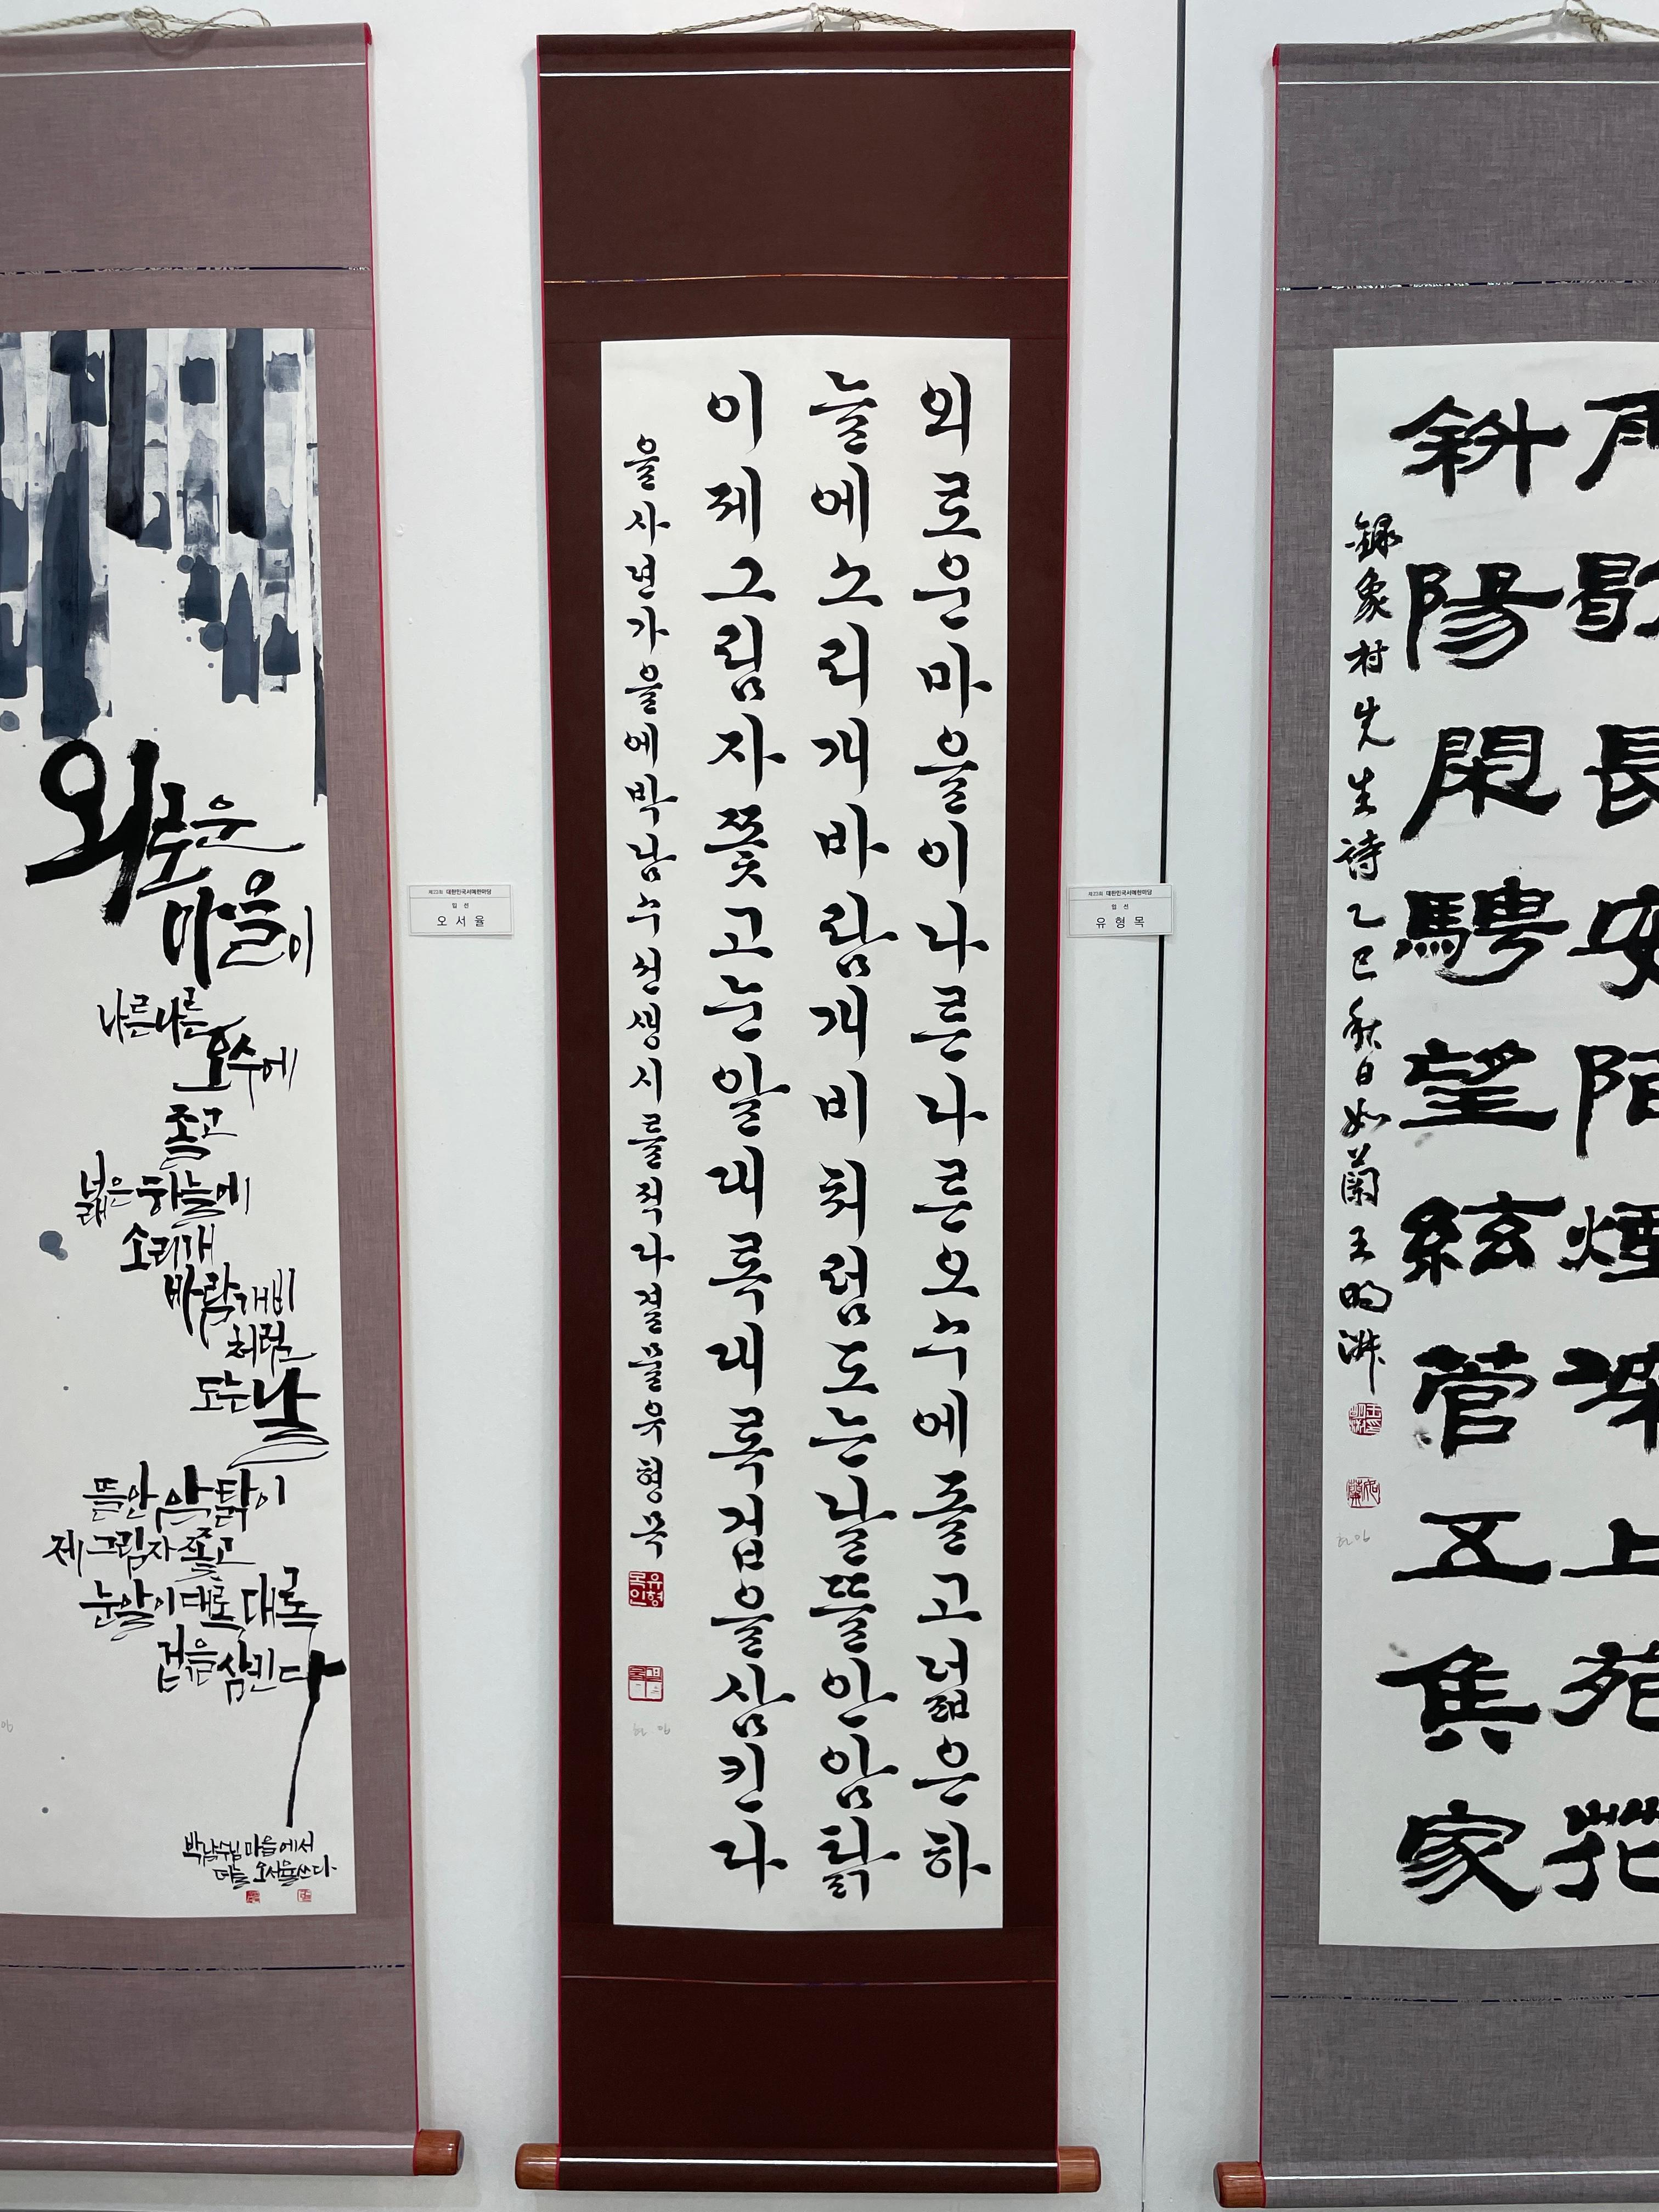 외로운
마을이
나른나른
오수에
졸고
넓은 하늘에
소리개
바람개비
처럼
도는 날
뜰안 암탉이
제 그림자 쫓고
눈알이 대록 대록
겁을 삼킨다
박남수님 마을에서
오서율 쓰다
제23회 대한민국서예한마당
입 선
오 서 율
외로운마을이나른나른오수에졸고넓은하
늘에소리개바람개비처럼도는날뜰안암탉
이제그림자쫓고눈알대록대록겁을삼킨다
을사년가을에박남수선생시를적다결물유형목
유형목인
제23회 대한민국서예한마당
입 선
유 형 목
雨歇長安陌煙深上苑花
斜陽閑騁望絃管五侯家
録象村先生詩乙巳秋日如蘭王明淋